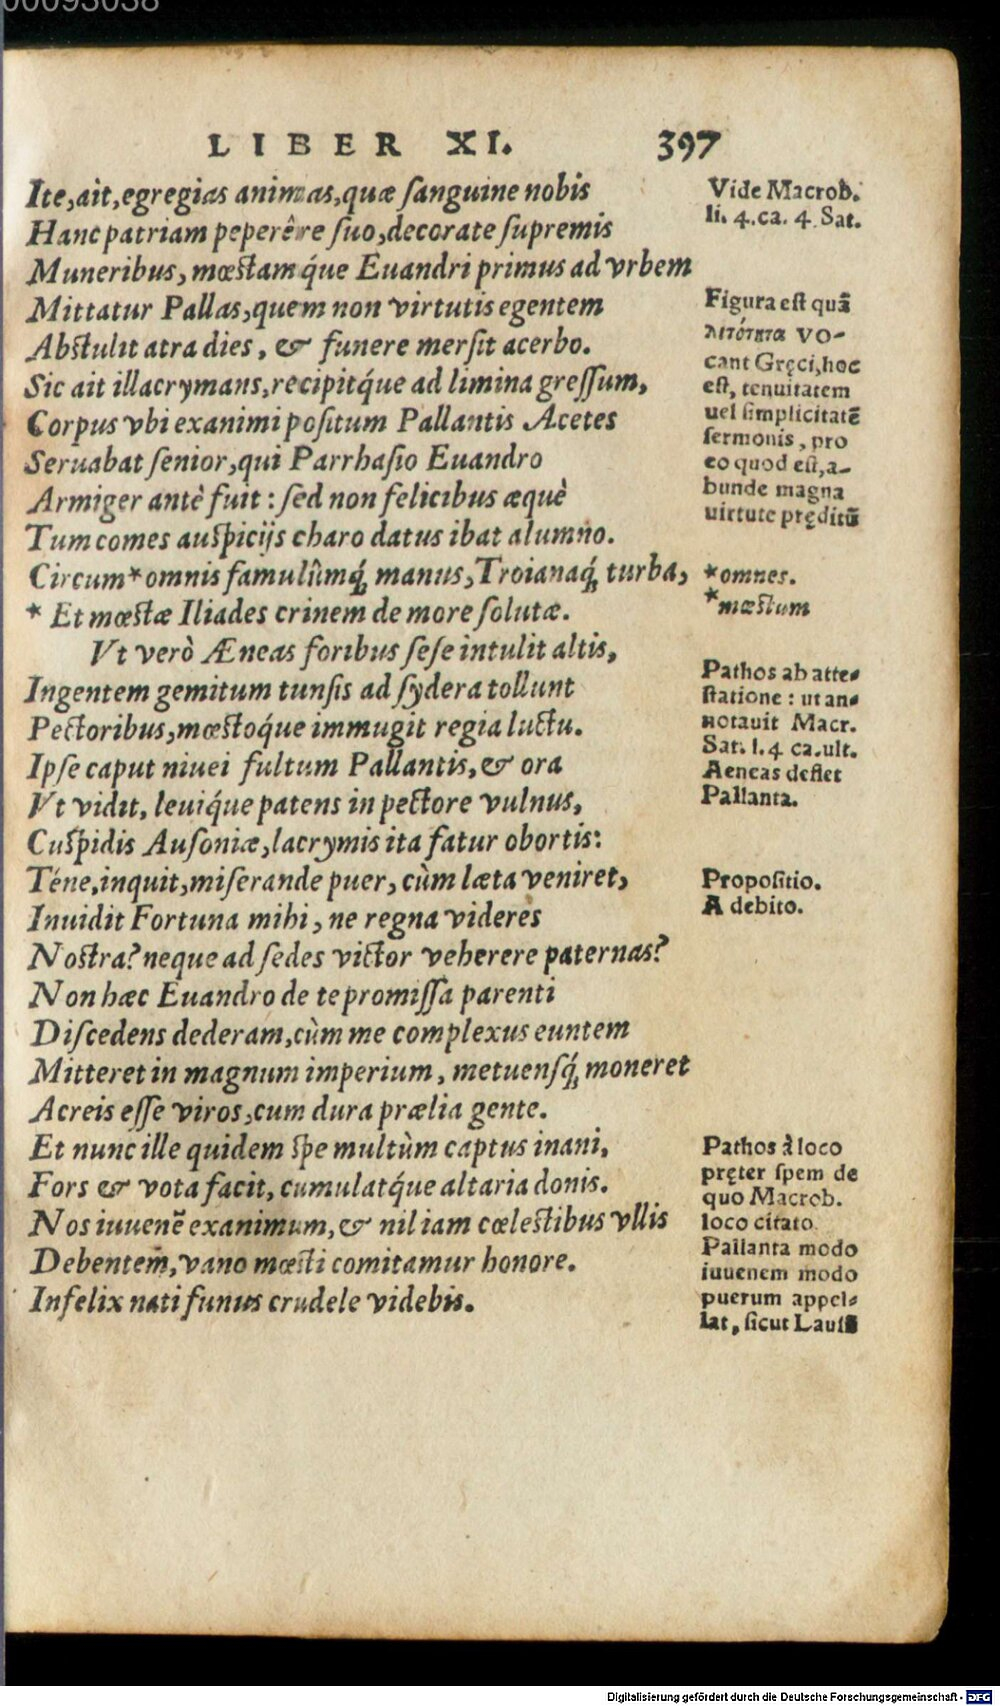 00093038
LIBER XI. 397
Ite,ait,egregias animas,quæ ſanguine nobis
Hanc patriam peperêre ſuo,decorate ſupremis
Muneribus, mœstamq́ue Euandri primus ad vrbem
Mittatur Pallas,quem non virtutis egentem
Abstulit atra dies, & funere merſit acerbo.
Sic ait illacrymans,recipitq́ue ad limina greſſum,
Corpus vbi exanimi poſitum Pallantis Acetes
Seruabat ſenior,qui Parrhaſio Euandro
Armiger antè fuit: ſed non felicibus æquè
Tum comes auſpicijs charo datus ibat alumno.
Circum*omnis famulûmq́; manus,Troianaq́; turba,
* Et mœstæ Iliades crinem de more ſolutæ.
Vt verò Æneas foribus ſeſe intulit altis,
Ingentem gemitum tunſis ad ſydera tollunt
Pectoribus,mœstoq́ue immugit regia luctu.
Ipſe caput niuei fultum Pallantis,& ora
Vt vidit, leuiq́ue patens in pectore vulnus,
Cuſpidis Auſoniæ,lacrymis ita fatur obortis:
Téne,inquit,miſerande puer, cùm læta veniret,
Inuidit Fortuna mihi, ne regna videres
Nostra? neque ad ſedes victor veherere paternas?
Non hæc Euandro de te promiſſa parenti
Diſcedens dederam,cùm me complexus euntem
Mitteret in magnum imperium, metuenſq́; moneret
Acreis eſſe viros,cum dura prælia gente.
Et nunc ille quidem ſpe multùm captus inani,
Fors & vota facit, cumulatq́ue altaria donis.
Nos iuuenē exanimum,& nil iam cœlestibus vllis
Debentem,vano mœsti comitamur honore.
Infelix nati funus crudele videbis.
Vide Macrob.
li. 4.ca. 4. Sat.
Figura eſt quā
λιτότητα vo-
cant Gręci,hoc
eſt, tenuitatem
uel ſimplicitatē
ſermonis, pro
eo quod eſt,a-
bunde magna
uirtute pręditū
*omnes.
*mœstum
Pathos ab atte-
ſtatione: ut an-
notauit Macr.
Sat. l.4 ca.ult.
Aeneas deflet
Pallanta.
Propoſitio.
A debito.
Pathos à loco
pręter ſpem de
quo Macrob.
loco citato
Pallanta modo
iuuenem modo
puerum appel-
lat, ſicut Lauſū
Digitalisierung gefördert durch die Deutsche Forschungsgemeinschaft - DFG